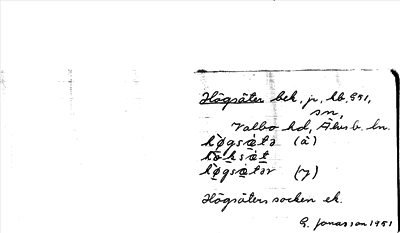 Högsäter bek. jr, hb. 951,
sn,
Valbo hd, Älvsb. ln.
hø̀gsætə (a)
hø̀gsætər (y)
Högsäters socken ek.
G. Jonasson 1951